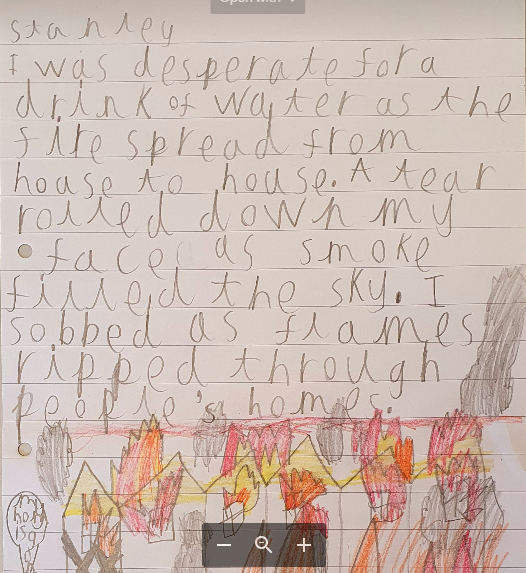 stanley
I was desperate for a
drink of water as the
fire spread from
house to house. A tear
rolled down my
face as smoke
filled the sky. I
sobbed as flames
ripped through
people's homes.
my
hom
is g